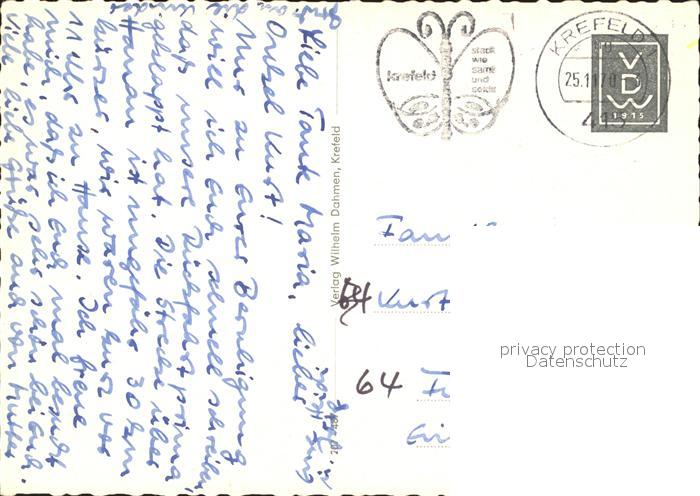 Liebe Tante Maria, lieber
Onkel Kurt!
Nur zu Eurer Beruhigung
will ich Euch schnell schreiben,
daß unsere Rückfahrt prima
geklappt hat. Die Strecke über
Hanau ist ungefähr 30 km
kürzer, wir waren kurz vor
11 Uhr zu Hause. Ich freue
mich, daß ich Euch mal besucht
habe, es war sehr schön bei Euch.
Viele Grüße auch von Mutter.
Verlag Wilhelm Dahmen, Krefeld
krefeld
stadt
wie
samt
und
seide
KREFELD
25.11.70
415
VDW
1915
Fam
64 Kurt
64
privacy protection
Datenschutz